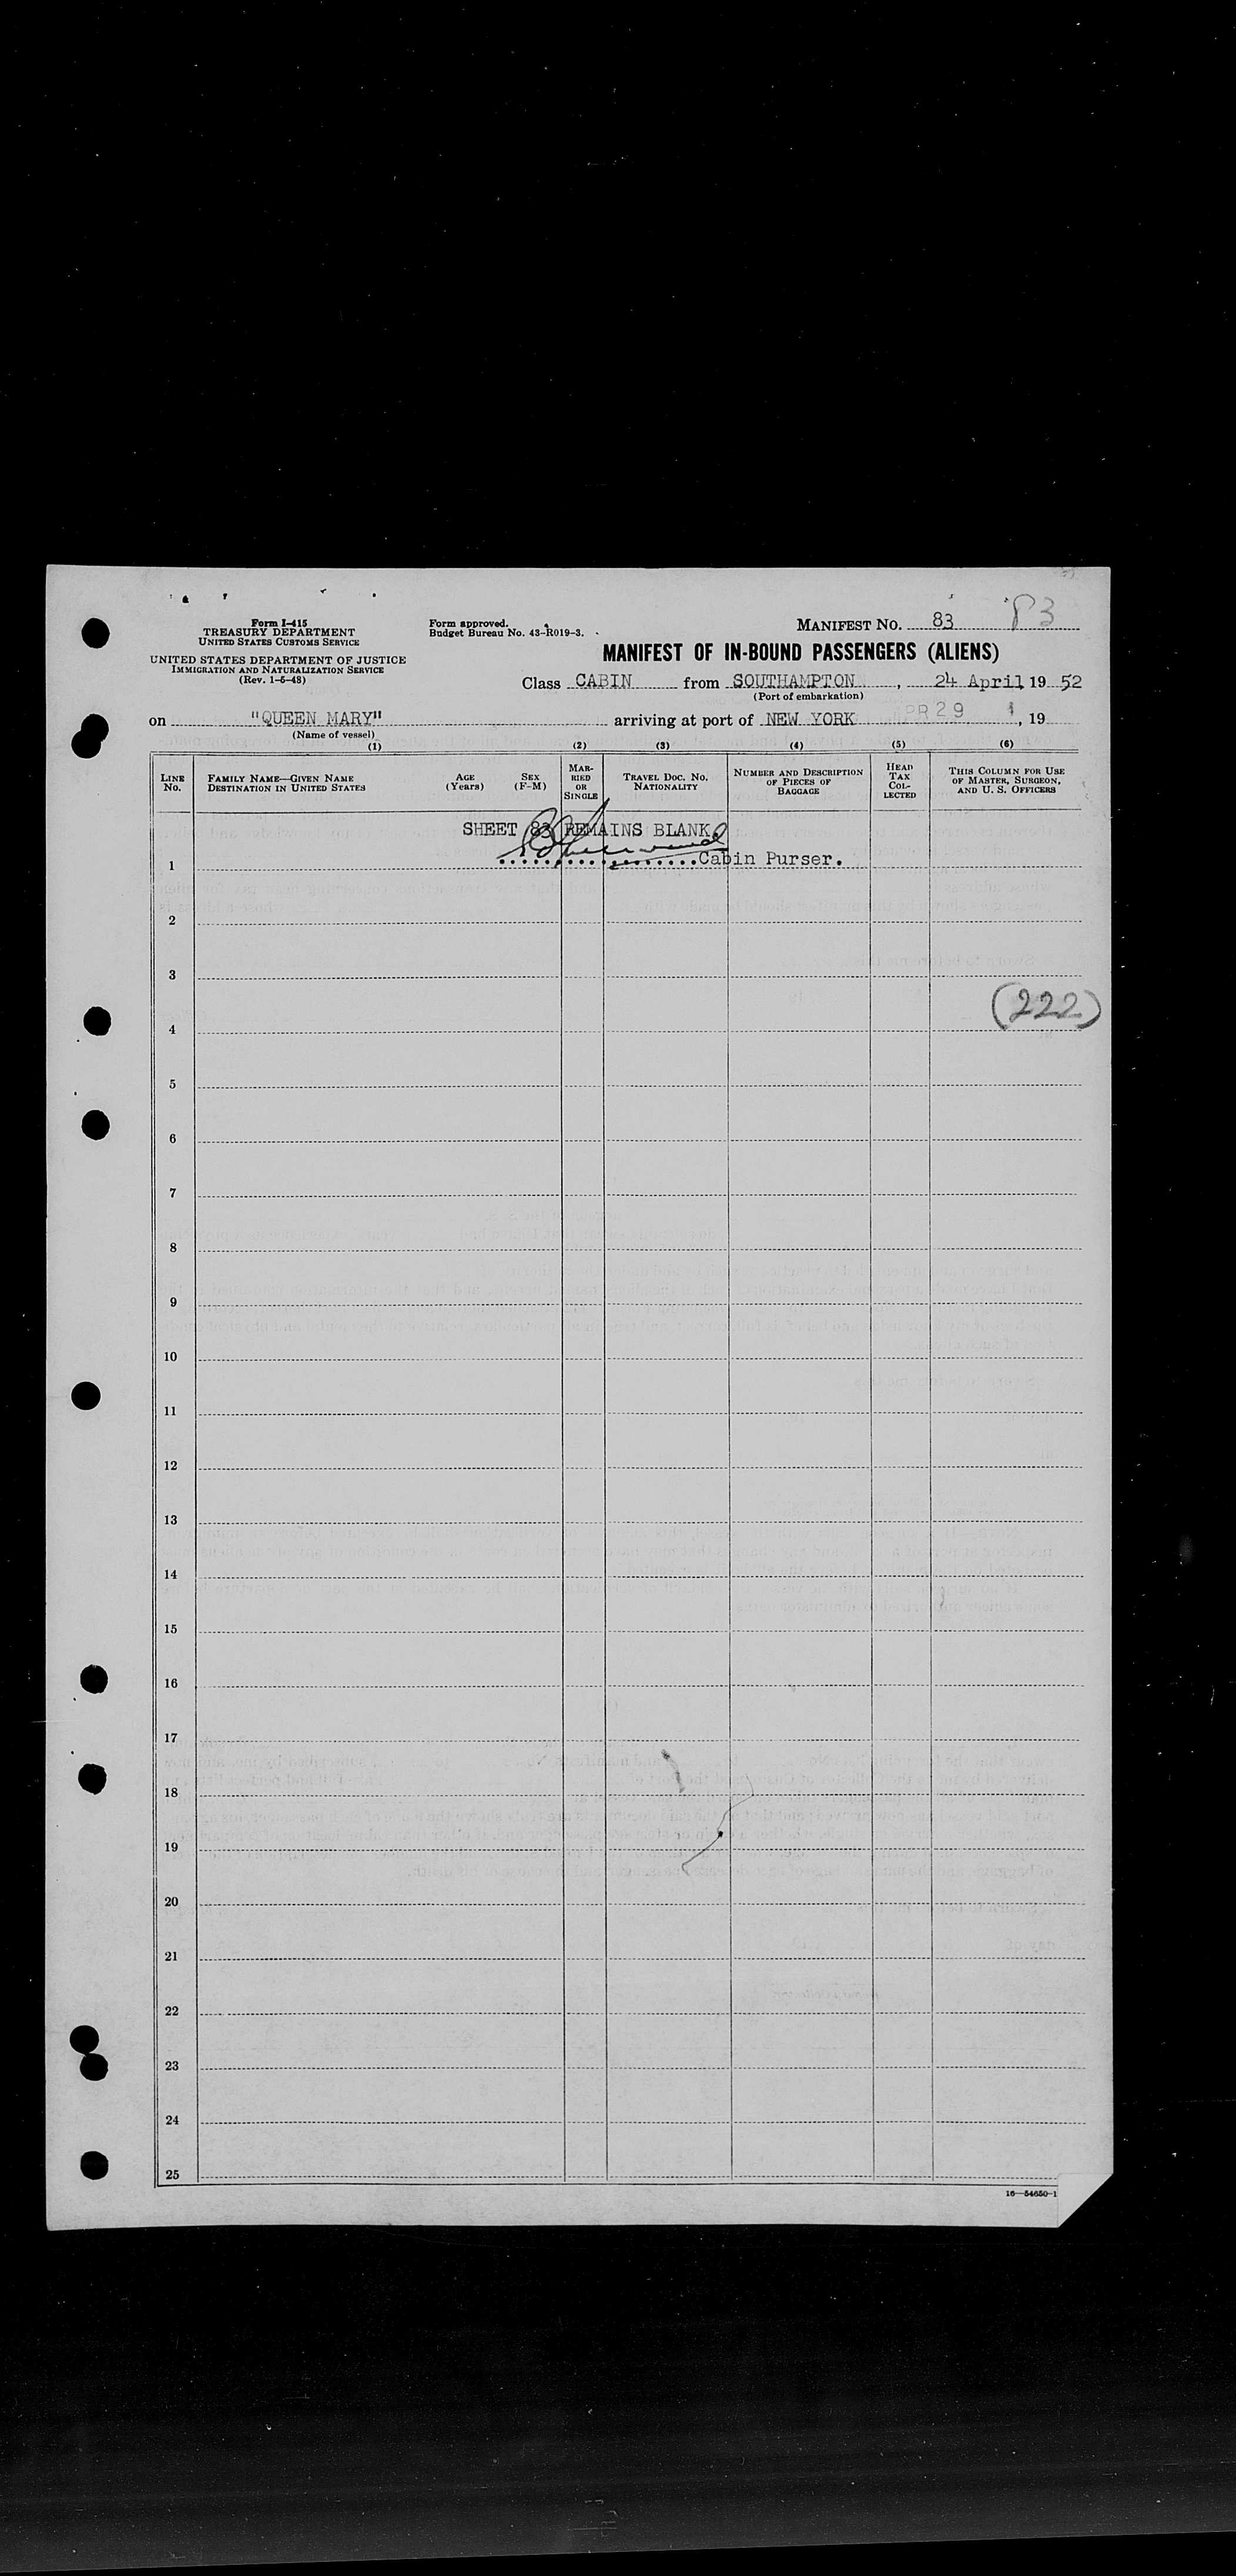 Form I-415
TREASURY DEPARTMENT
UNITED STATES CUSTOMS SERVICE
UNITED STATES DEPARTMENT OF JUSTICE
IMMIGRATION AND NATURALIZATION SERVICE
(Rev. 1-6-48)
Form approved.
Budget Bureau No. 43-R019-3.
MANIFEST NO. 83 83
MANIFEST OF IN-BOUND PASSENGERS (ALIENS)
Class CABIN from SOUTHAMPTON, 24 April 19 52
(Port of embarkation)
on "QUEEN MARY" arriving at port of NEW YORK 29, 19
(Name of vessel)
(1) (2) (3) (4) (5) (6)
LINE No.
FAMILY NAME—GIVEN NAME
DESTINATION IN UNITED STATES
AGE (Years)
SEX (F-M)
MARRIED OR SINGLE
TRAVEL DOC. NO.
NATIONALITY
NUMBER AND DESCRIPTION OF PIECES OF BAGGAGE
HEAD TAX COLLECTED
THIS COLUMN FOR USE OF MASTER, SURGEON, AND U. S. OFFICERS
SHEET 83 REMAINS BLANK
1 ..................Cabin Purser.
2
3
(222)
4
5
6
7
8
9
10
11
12
13
14
15
16
17
18
19
20
21
22
23
24
25
16—54650-1